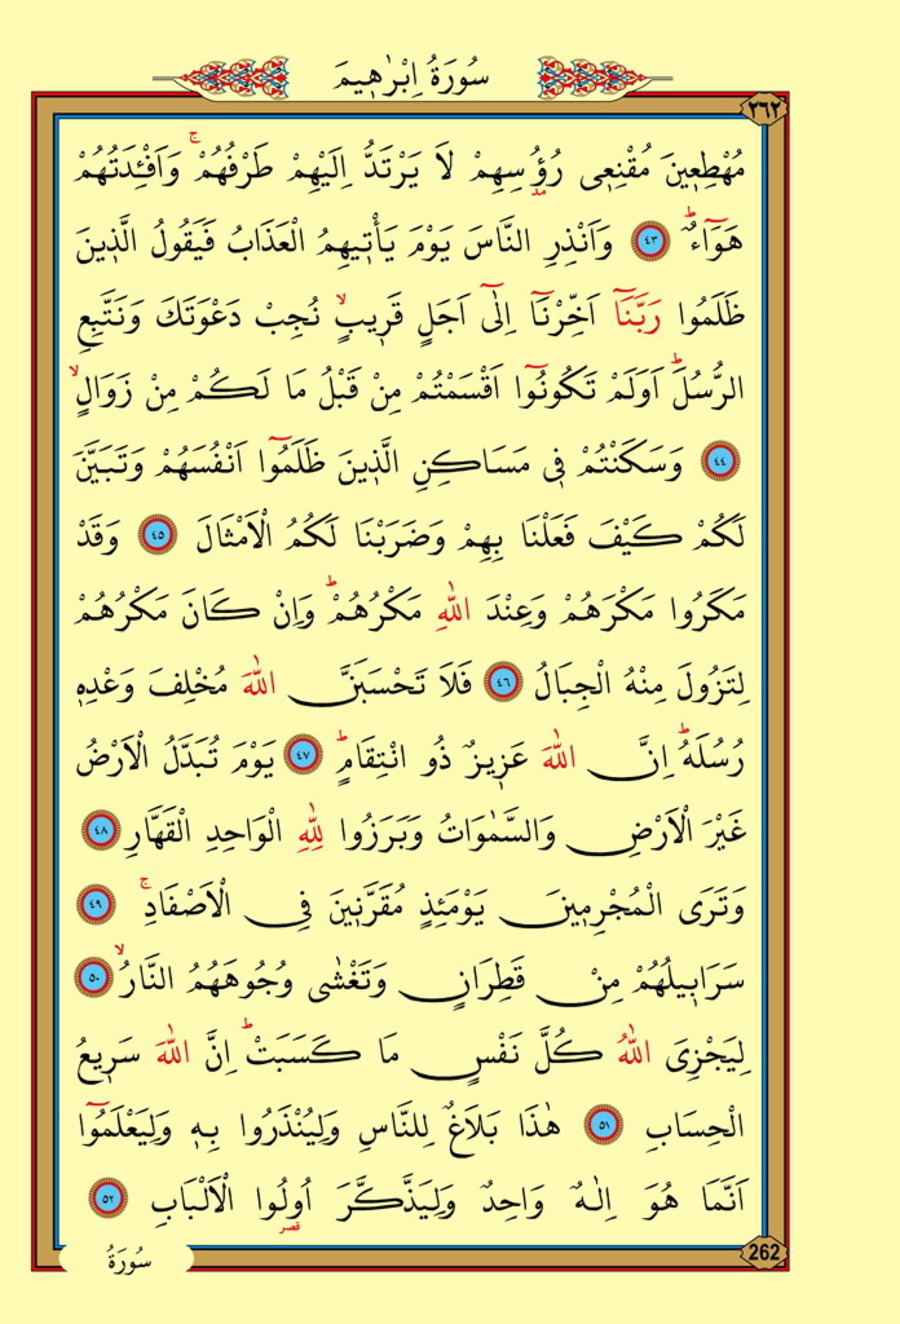 سُورَةُ اِبْرٰه۪يمَ
٢٦٢
مُهْطِع۪ينَ مُقْنِع۪ى رُؤُ۫سِهِمْ لَا يَرْتَدُّ اِلَيْهِمْ طَرْفُهُمْۚ وَاَفْـِٔدَتُهُمْ
مد
هَوَٓاءٌۜ ٤٣ وَاَنْذِرِ النَّاسَ يَوْمَ يَأْت۪يهِمُ الْعَذَابُ فَيَقُولُ الَّذ۪ينَ
ظَلَمُوا رَبَّنَٓا اَخِّرْنَٓا اِلٰٓى اَجَلٍ قَر۪يبٍۙ نُجِبْ دَعْوَتَكَ وَنَتَّبِعِ
الرُّسُلَۜ اَوَلَمْ تَكُونُٓوا اَقْسَمْتُمْ مِنْ قَبْلُ مَا لَكُمْ مِنْ زَوَالٍۙ
٤٤ وَسَكَنْتُمْ ف۪ى مَسَاكِنِ الَّذ۪ينَ ظَلَمُٓوا اَنْفُسَهُمْ وَتَبَيَّنَ
لَكُمْ كَيْفَ فَعَلْنَا بِهِمْ وَضَرَبْنَا لَكُمُ الْاَمْثَالَ ٤٥ وَقَدْ
مَكَرُوا مَكْرَهُمْ وَعِنْدَ اللّٰهِ مَكْرُهُمْۜ وَاِنْ كَانَ مَكْرُهُمْ
لِتَزُولَ مِنْهُ الْجِبَالُ ٤٦ فَلَا تَحْسَبَنَّ اللّٰهَ مُخْلِفَ وَعْدِه۪
رُسُلَهُۜ اِنَّ اللّٰهَ عَز۪يزٌ ذُو انْتِقَامٍۜ ٤٧ يَوْمَ تُبَدَّلُ الْاَرْضُ
غَيْرَ الْاَرْضِ وَالسَّمٰوَاتُ وَبَرَزُوا لِلّٰهِ الْوَاحِدِ الْقَهَّارِ ٤٨
وَتَرَى الْمُجْرِم۪ينَ يَوْمَئِذٍ مُقَرَّن۪ينَ فِى الْاَصْفَادِۚ ٤٩
سَرَاب۪يلُهُمْ مِنْ قَطِرَانٍ وَتَغْشٰى وُجُوهَهُمُ النَّارُۙ ٥٠
لِيَجْزِىَ اللّٰهُ كُلَّ نَفْسٍ مَا كَسَبَتْۜ اِنَّ اللّٰهَ سَر۪يعُ
الْحِسَابِ ٥١ هٰذَا بَلَاغٌ لِلنَّاسِ وَلِيُنْذَرُوا بِه۪ وَلِيَعْلَمُٓوا
اَنَّمَا هُوَ اِلٰهٌ وَاحِدٌ وَلِيَذَّكَّرَ اُولُوا الْاَلْبَابِ ٥٢
قصر
262
سُورَةُ